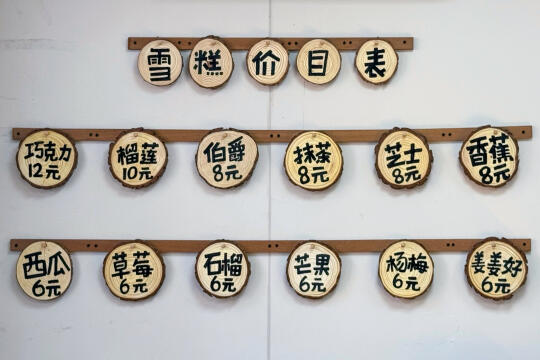 雪糕价目表
巧克力 榴莲 伯爵 抹茶 芝士 香蕉
12元 10元 8元 8元 8元 8元
西瓜 草莓 石榴 芒果 杨梅 姜姜好
6元 6元 6元 6元 6元 6元